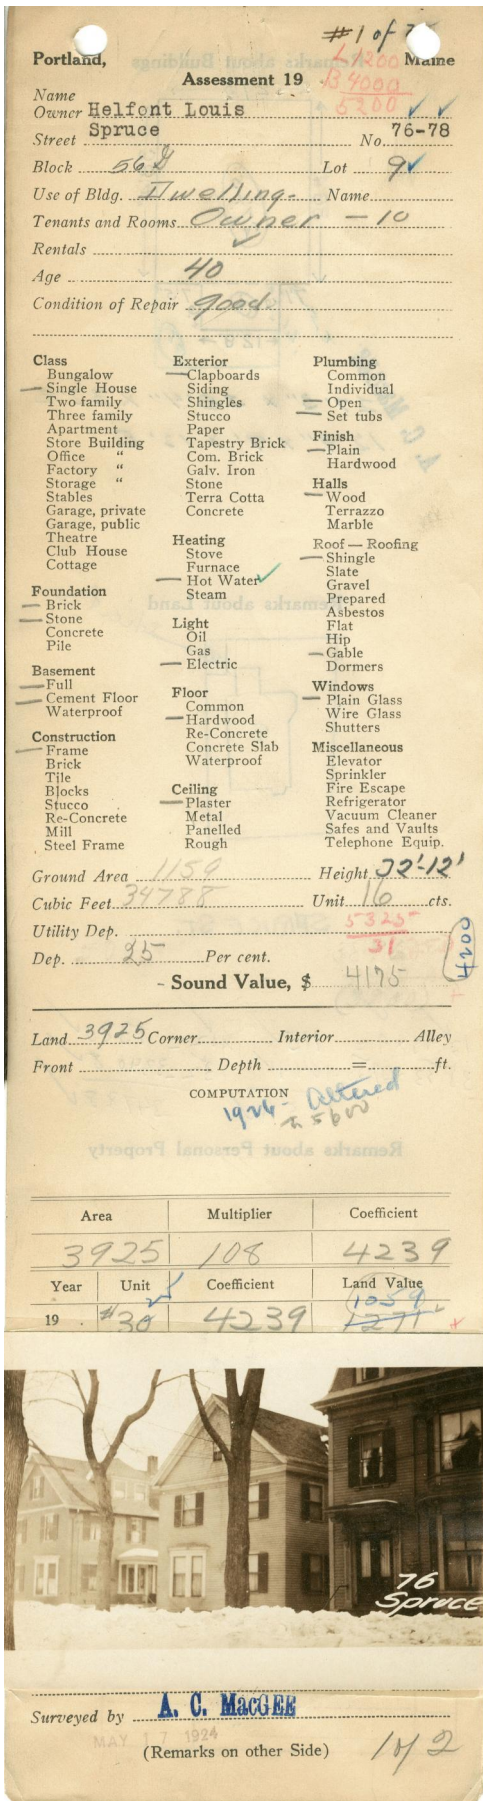 #1 of
Portland, Maine
L 1200
B 4000
5200
Assessment 19
Name
Owner Helfont Louis
Street Spruce No. 76-78
Block 56 Lot 9
Use of Bldg. Dwelling Name
Tenants and Rooms Owner - 10
Rentals
Age 40
Condition of Repair good
Class
Bungalow
Single House
Two family
Three family
Apartment
Store Building
Office "
Factory "
Storage "
Stables
Garage, private
Garage, public
Theatre
Club House
Cottage
Foundation
Brick
Stone
Concrete
Pile
Basement
Full
Cement Floor
Waterproof
Construction
Frame
Brick
Tile
Blocks
Stucco
Re-Concrete
Mill
Steel Frame
Exterior
Clapboards
Siding
Shingles
Stucco
Paper
Tapestry Brick
Com. Brick
Galv. Iron
Stone
Terra Cotta
Concrete
Heating
Stove
Furnace
Hot Water
Steam
Light
Oil
Gas
Electric
Floor
Common
Hardwood
Re-Concrete
Concrete Slab
Waterproof
Ceiling
Plaster
Metal
Panelled
Rough
Plumbing
Common
Individual
Open
Set tubs
Finish
Plain
Hardwood
Halls
Wood
Terrazzo
Marble
Roof — Roofing
Shingle
Slate
Gravel
Prepared
Asbestos
Flat
Hip
Gable
Dormers
Windows
Plain Glass
Wire Glass
Shutters
Miscellaneous
Elevator
Sprinkler
Fire Escape
Refrigerator
Vacuum Cleaner
Safes and Vaults
Telephone Equip.
Ground Area 1159 Height 32'-12'
Cubic Feet 34788 Unit 16 cts.
Utility Dep. 5325
31
Dep. 25 Per cent.
4200
- Sound Value, $ 4175
Land 3925 Corner Interior Alley
Front Depth = ft.
COMPUTATION
1926 - altered
5600
Area Multiplier Coefficient
3925 108 4239
Year Unit Coefficient Land Value
1059
19 #30 4239 1271
76
Spruce
Surveyed by A. C. MacGEE
MAY 1924
(Remarks on other Side) 1 of 2